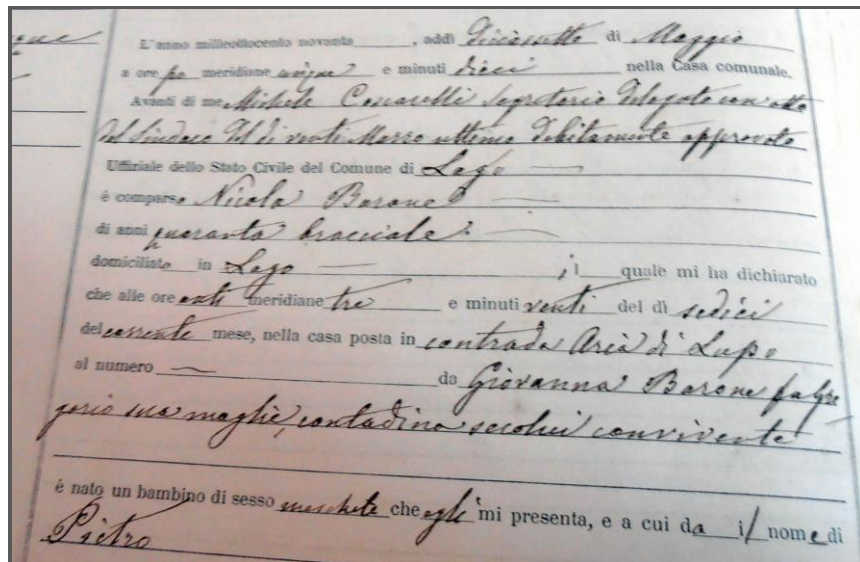 L'anno milleottocento novanta, addì diciassette di Maggio
a ore po meridiane cinque e minuti dieci nella Casa comunale.
Avanti di me Michele Coscarelli Segretario delegato con atto
del Sindaco del dì venti Marzo ultimo debitamente approvato
Uffiziale dello Stato Civile del Comune di Lago
è comparso Nicola Barone
di anni quaranta bracciale
domiciliato in Lago, il quale mi ha dichiarato
che alle ore anti meridiane tre e minuti venti del dì sedici
del corrente mese, nella casa posta in contrada Aria di Lupo
al numero da Giovanna Barone fu Gre
gorio sua moglie, contadina secolui convivente
è nato un bambino di sesso maschile che egli mi presenta, e a cui da il nome di
Pietro